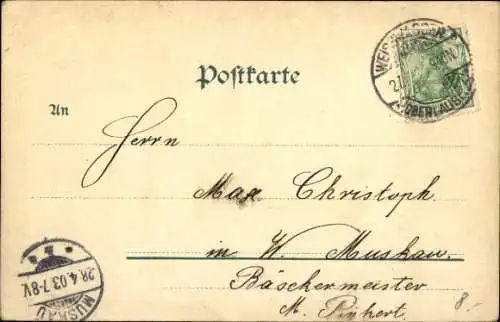 Postkarte
An
Herrn
Max Christoph.
in W. Muskau.
Bäschermeister
M. Pinkert.
8.-
WEISSWASSER
(OBERLAUSITZ)
28.4.03 7-8V.
MUSKAU